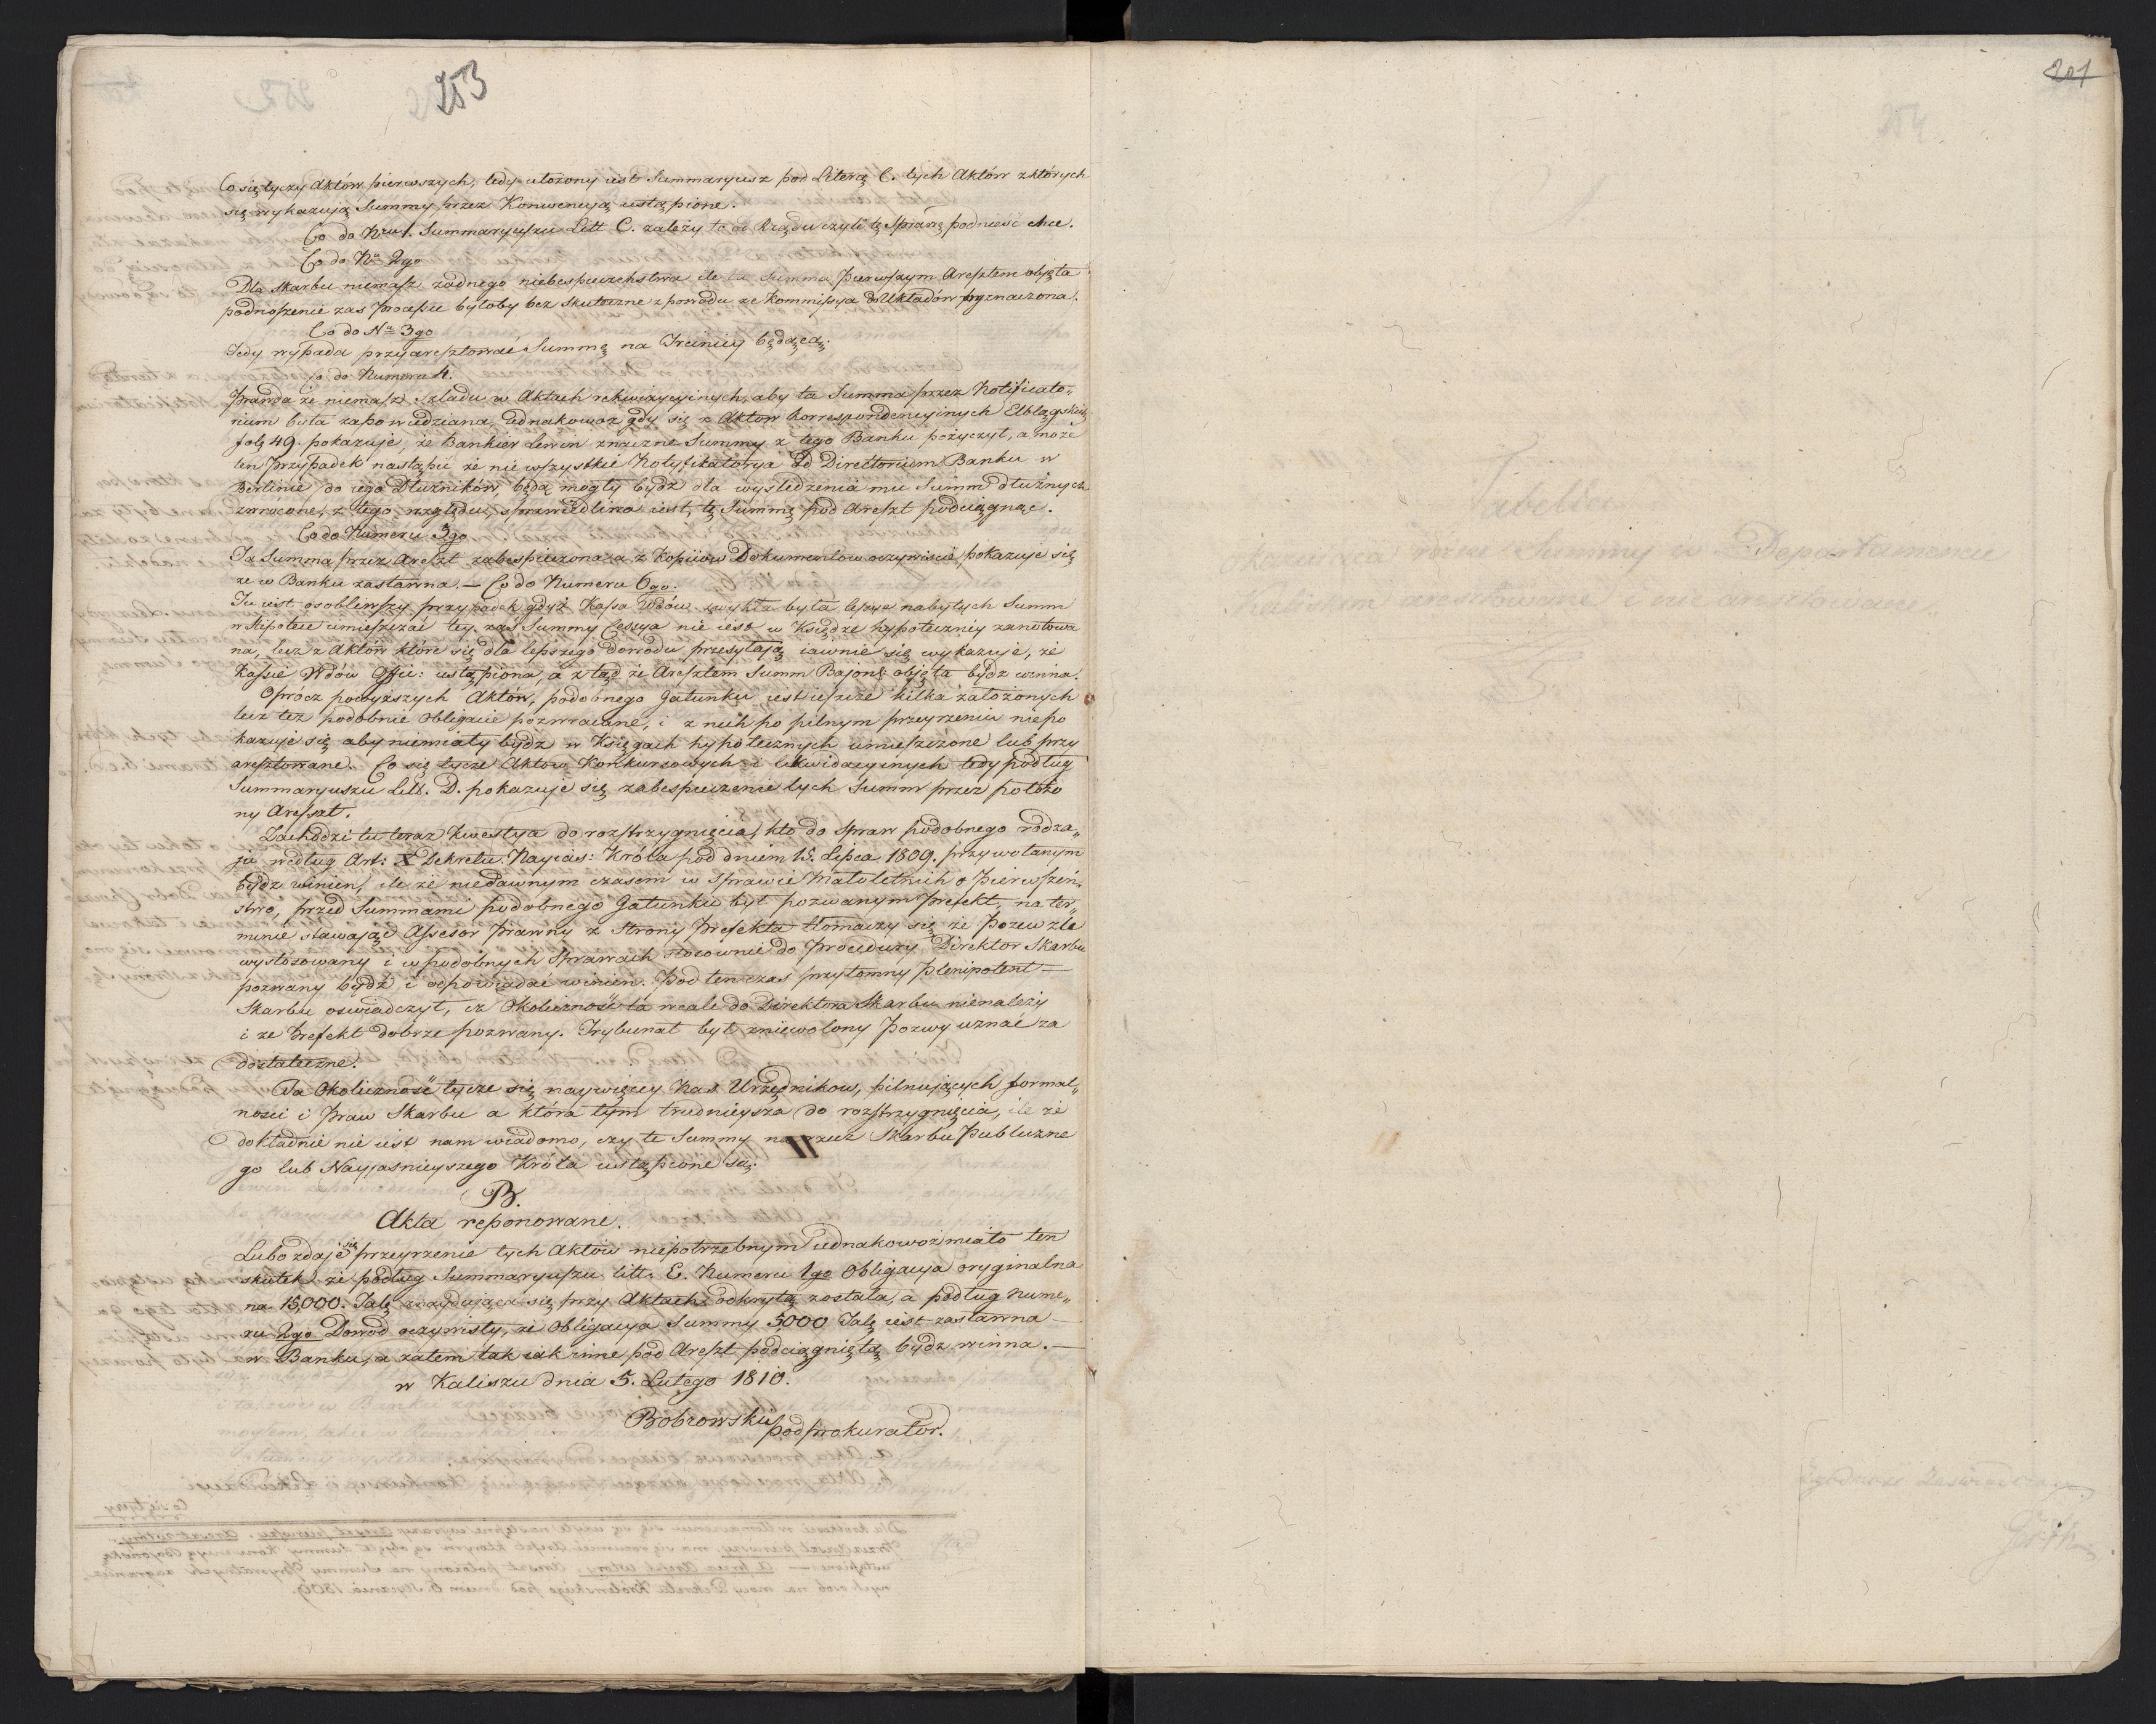 253
Co się tyczy Aktów pierwszych, tedy ułożony iest Summaryusz pod Literą C. tych Aktów z których
się wykazują Summy przez Konwencyą ustąpione.
Co do Nru 1. Summaryuszu Litt C. zależy to od Rządu czyli tę Sprawę podnieść chce.
Co do Nru 2go
Dla Skarbu niemasz żadnego niebespieczeństwa ile ta Summa pierwszym Aresztem obięta
podnoszenie zas Processu byłoby bez skuteczne z powodu że Kommissya do Układów wyznaczona.
Co do Nru 3go
Tedy wypada przyaresztować Summę na Trcinicy będącą.
Co do Numeru 4.
Prawda że niemasz szladu w Aktach rekwizycyinych, aby ta Summa przez Notificato„
rium była zapowiedziana, iednakowoż gdy się z Aktow Korrespondencyinych Elblągskich
folę 49. pokazuje, że Bankier Lewin znaczne Summy z tego Banku pożyczył, a może
ten przypadek nastąpić że nie wszystkie Notyfikatorya Od Directorium Banku w
Berlinie do iego Dłużników, będą mogły bydź dla wysledzenia mu Summ dłużnych
zwrocone, z tego względu, sprawiedliwa iest, tę Summę pod Areszt podciągnąć.
Co do Numeru 5go
Ta Summa przez Areszt zabespieczona a z Kopiiow Dokumentow oczywiscie pokazuje się
że w Banku zastawna. — Co do Numeru 6go.
Tu iest osobliwszy przypadek gdyż Kassa Wdów zwykła była Cessye nabytych Summ
w Hipotece umieszczać tey zaś Summy Cessya nie iest w Księdze hypoteczney zanotowa
na, lecz z Aktów które się dla lepszego dowodu przesyłają iawnie się wykazuje, że
Kassie Wdów Offic: ustąpiona, a ztąd że Aresztem Summ Bajońs: obięta bydz winna.
Oprócz powyższych Aktów, podobnego Gatunku iest ieszcze kilka założonych
lecz też podobnie Obligacie pozwracane, i z nich po pilnym przeyrzeniu niepo
kazuje się aby niemiały bydz w Księgach hypotecznych umieszczone lub przy
aresztowane. Co się tycze Aktow Konkursowych i likwidacyinych tedy podług
Summaryuszu Litt. D. pokazuje się zabespieczenie tych Summ przez położo
ny Areszt.
Zachodzi tu teraz kwestya do rozstrzygnięcia, kto do Spraw podobnego rodza„
ju według Art: X Dekretu Nayias: Króla pod dniem 15. Lipca 1809. przywołanym
bydz winien, ile że niedawnym czasem w Sprawie Małoletnich o pierwszeń„
stwo, przed Summami podobnego Gatunku był pozwanym Prefekt, na ter„
minie stawając Assesor prawny z Strony Prefekta tłomaczy się że Pozew zle
wystosowany i w podobnych Sprawach stosownie do Procedury Direktor Skarbu
pozwany bydź i odpowiadać winien. Pod ten czas przytomny Plenipotent —
Skarbu oswiadczył, iż Okoliczność ta wcale do Direktora Skarbu nienależy
i że Prefekt dobrze pozwany. Trybunał był zniewolony Pozwy uznać za
dostateczne.
Ta Okoliczność tycze się naywięcey Nas Urzędnikow, pilnujących formal„
nosci i Praw Skarbu a która tym trudnieysza do rozstrzygnięcia, ile że
dokładnie nie iest nam wiadomo, czy te Summy na rzecz Skarbu Publiczne
go lub Nayjasnieyszego Króla ustąpione są.
B.
Akta reponowane.
Lubo zdaje się przeyrzenie tych Aktów niepotrzebnym iednakowoż miało ten
skutek że podług Summaryuszu litt. E. Numeru 1go Obligacya oryginalna
na 15,000. Talę znaydująca się przy Aktach odkrytą została, a podług Nume„
ru 2go Dowod oczywisty, że Obligacya Summy 5000 Talę iest zastawna —
w Banku, a zatem tak iak inne pod Areszt podciągniętą bydz winna. —
w Kaliszu dnia 5. Lutego 1810.
Bobrowski podprokurator.
201
254
Tabella
okazuiąca rożne Summy w Departamencie
Kaliskim aresztowane i nie aresztowane